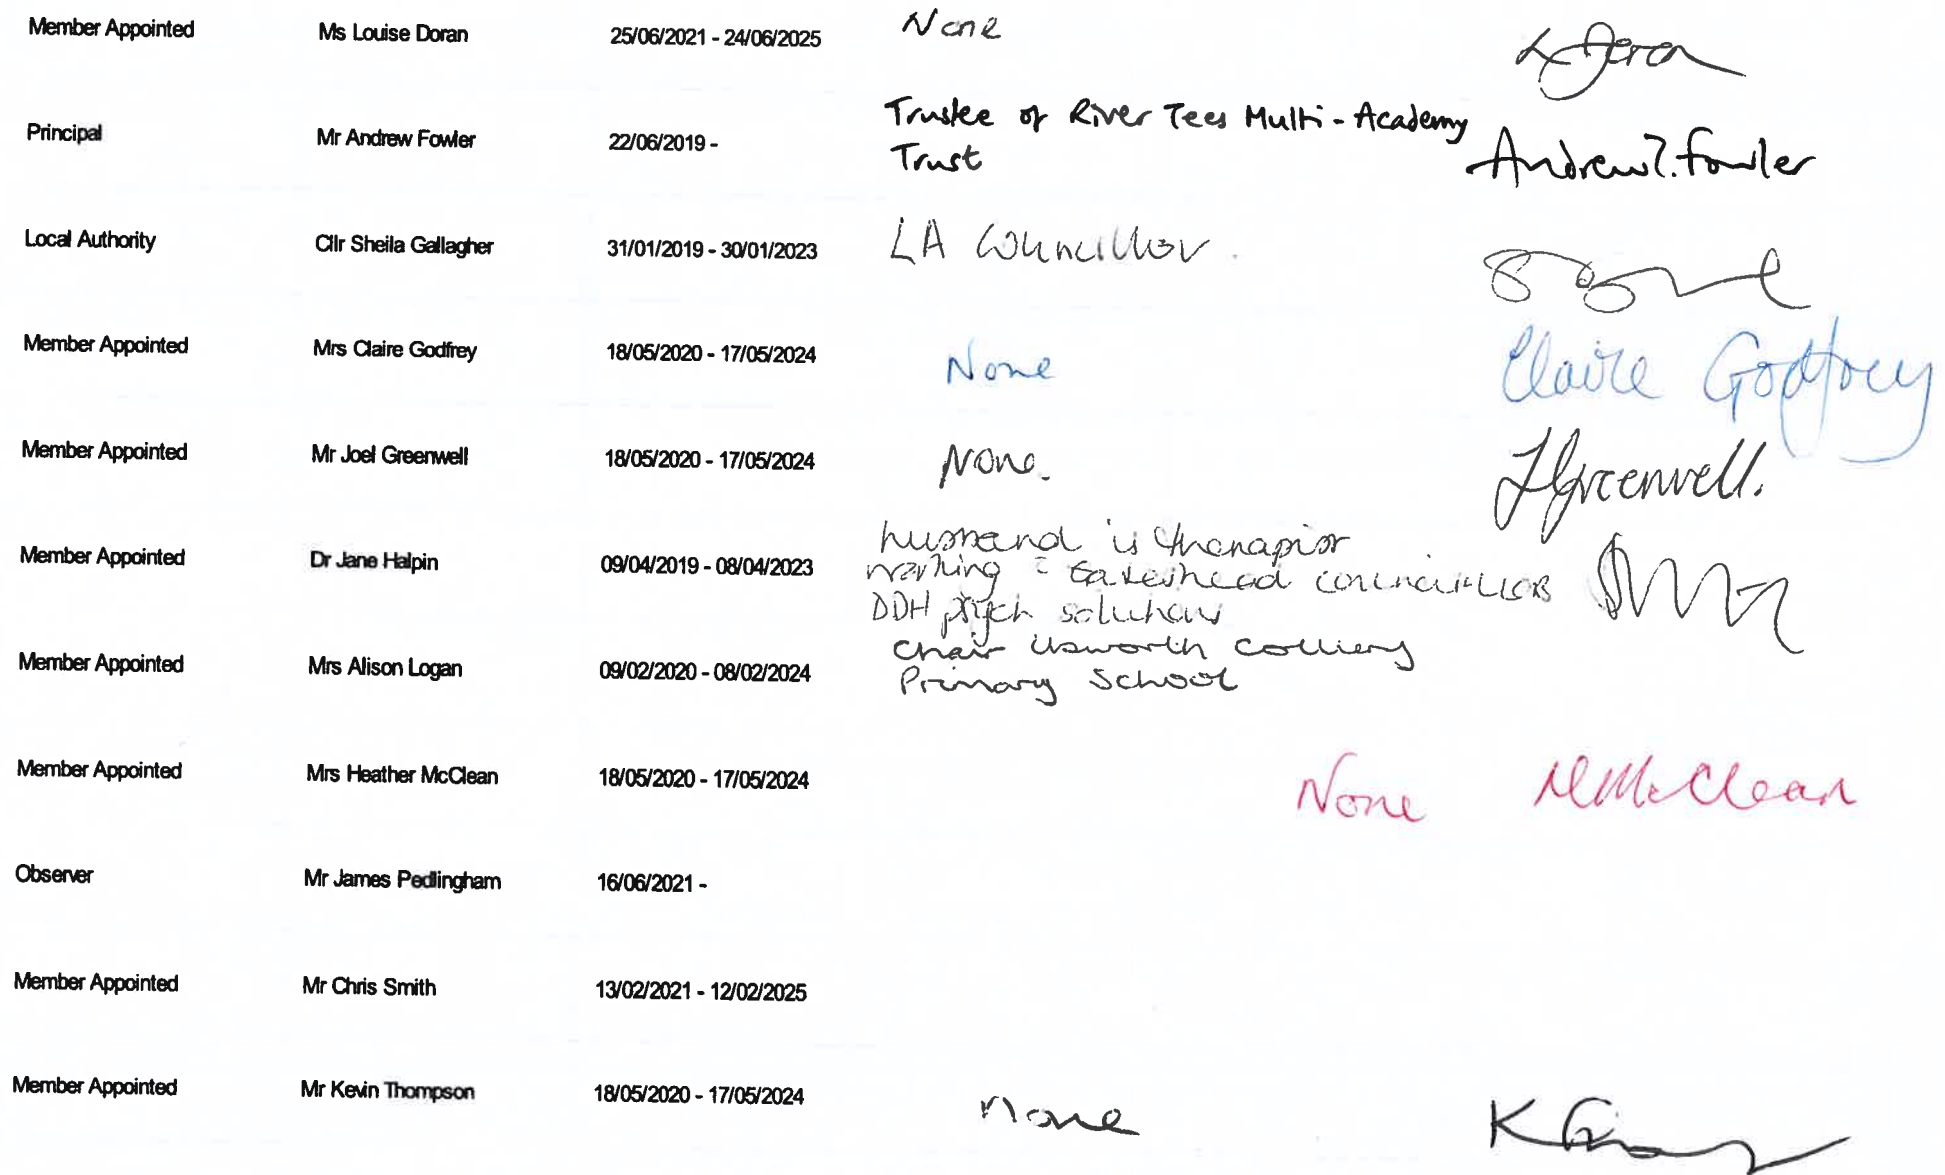 Member Appointed Ms Louise Doran 25/06/2021 - 24/06/2025 None
Principal Mr Andrew Fowler 22/06/2019 - Trustee of River Tees Multi-Academy
Trust Andrew T. Fowler
Local Authority Cllr Sheila Gallagher 31/01/2019 - 30/01/2023 LA Councillor.
Member Appointed Mrs Claire Godfrey 18/05/2020 - 17/05/2024 None Claire Godfrey
Member Appointed Mr Joel Greenwell 18/05/2020 - 17/05/2024 None. J Greenwell.
husband is therapist
Member Appointed Dr Jane Halpin 09/04/2019 - 08/04/2023 working Gateshead
DDH psych solutions
Chair Usworth Colliery
Member Appointed Mrs Alison Logan 09/02/2020 - 08/02/2024 Primary School
Member Appointed Mrs Heather McClean 18/05/2020 - 17/05/2024 None McClean
Observer Mr James Pedlingham 16/06/2021 -
Member Appointed Mr Chris Smith 13/02/2021 - 12/02/2025
Member Appointed Mr Kevin Thompson 18/05/2020 - 17/05/2024 none K